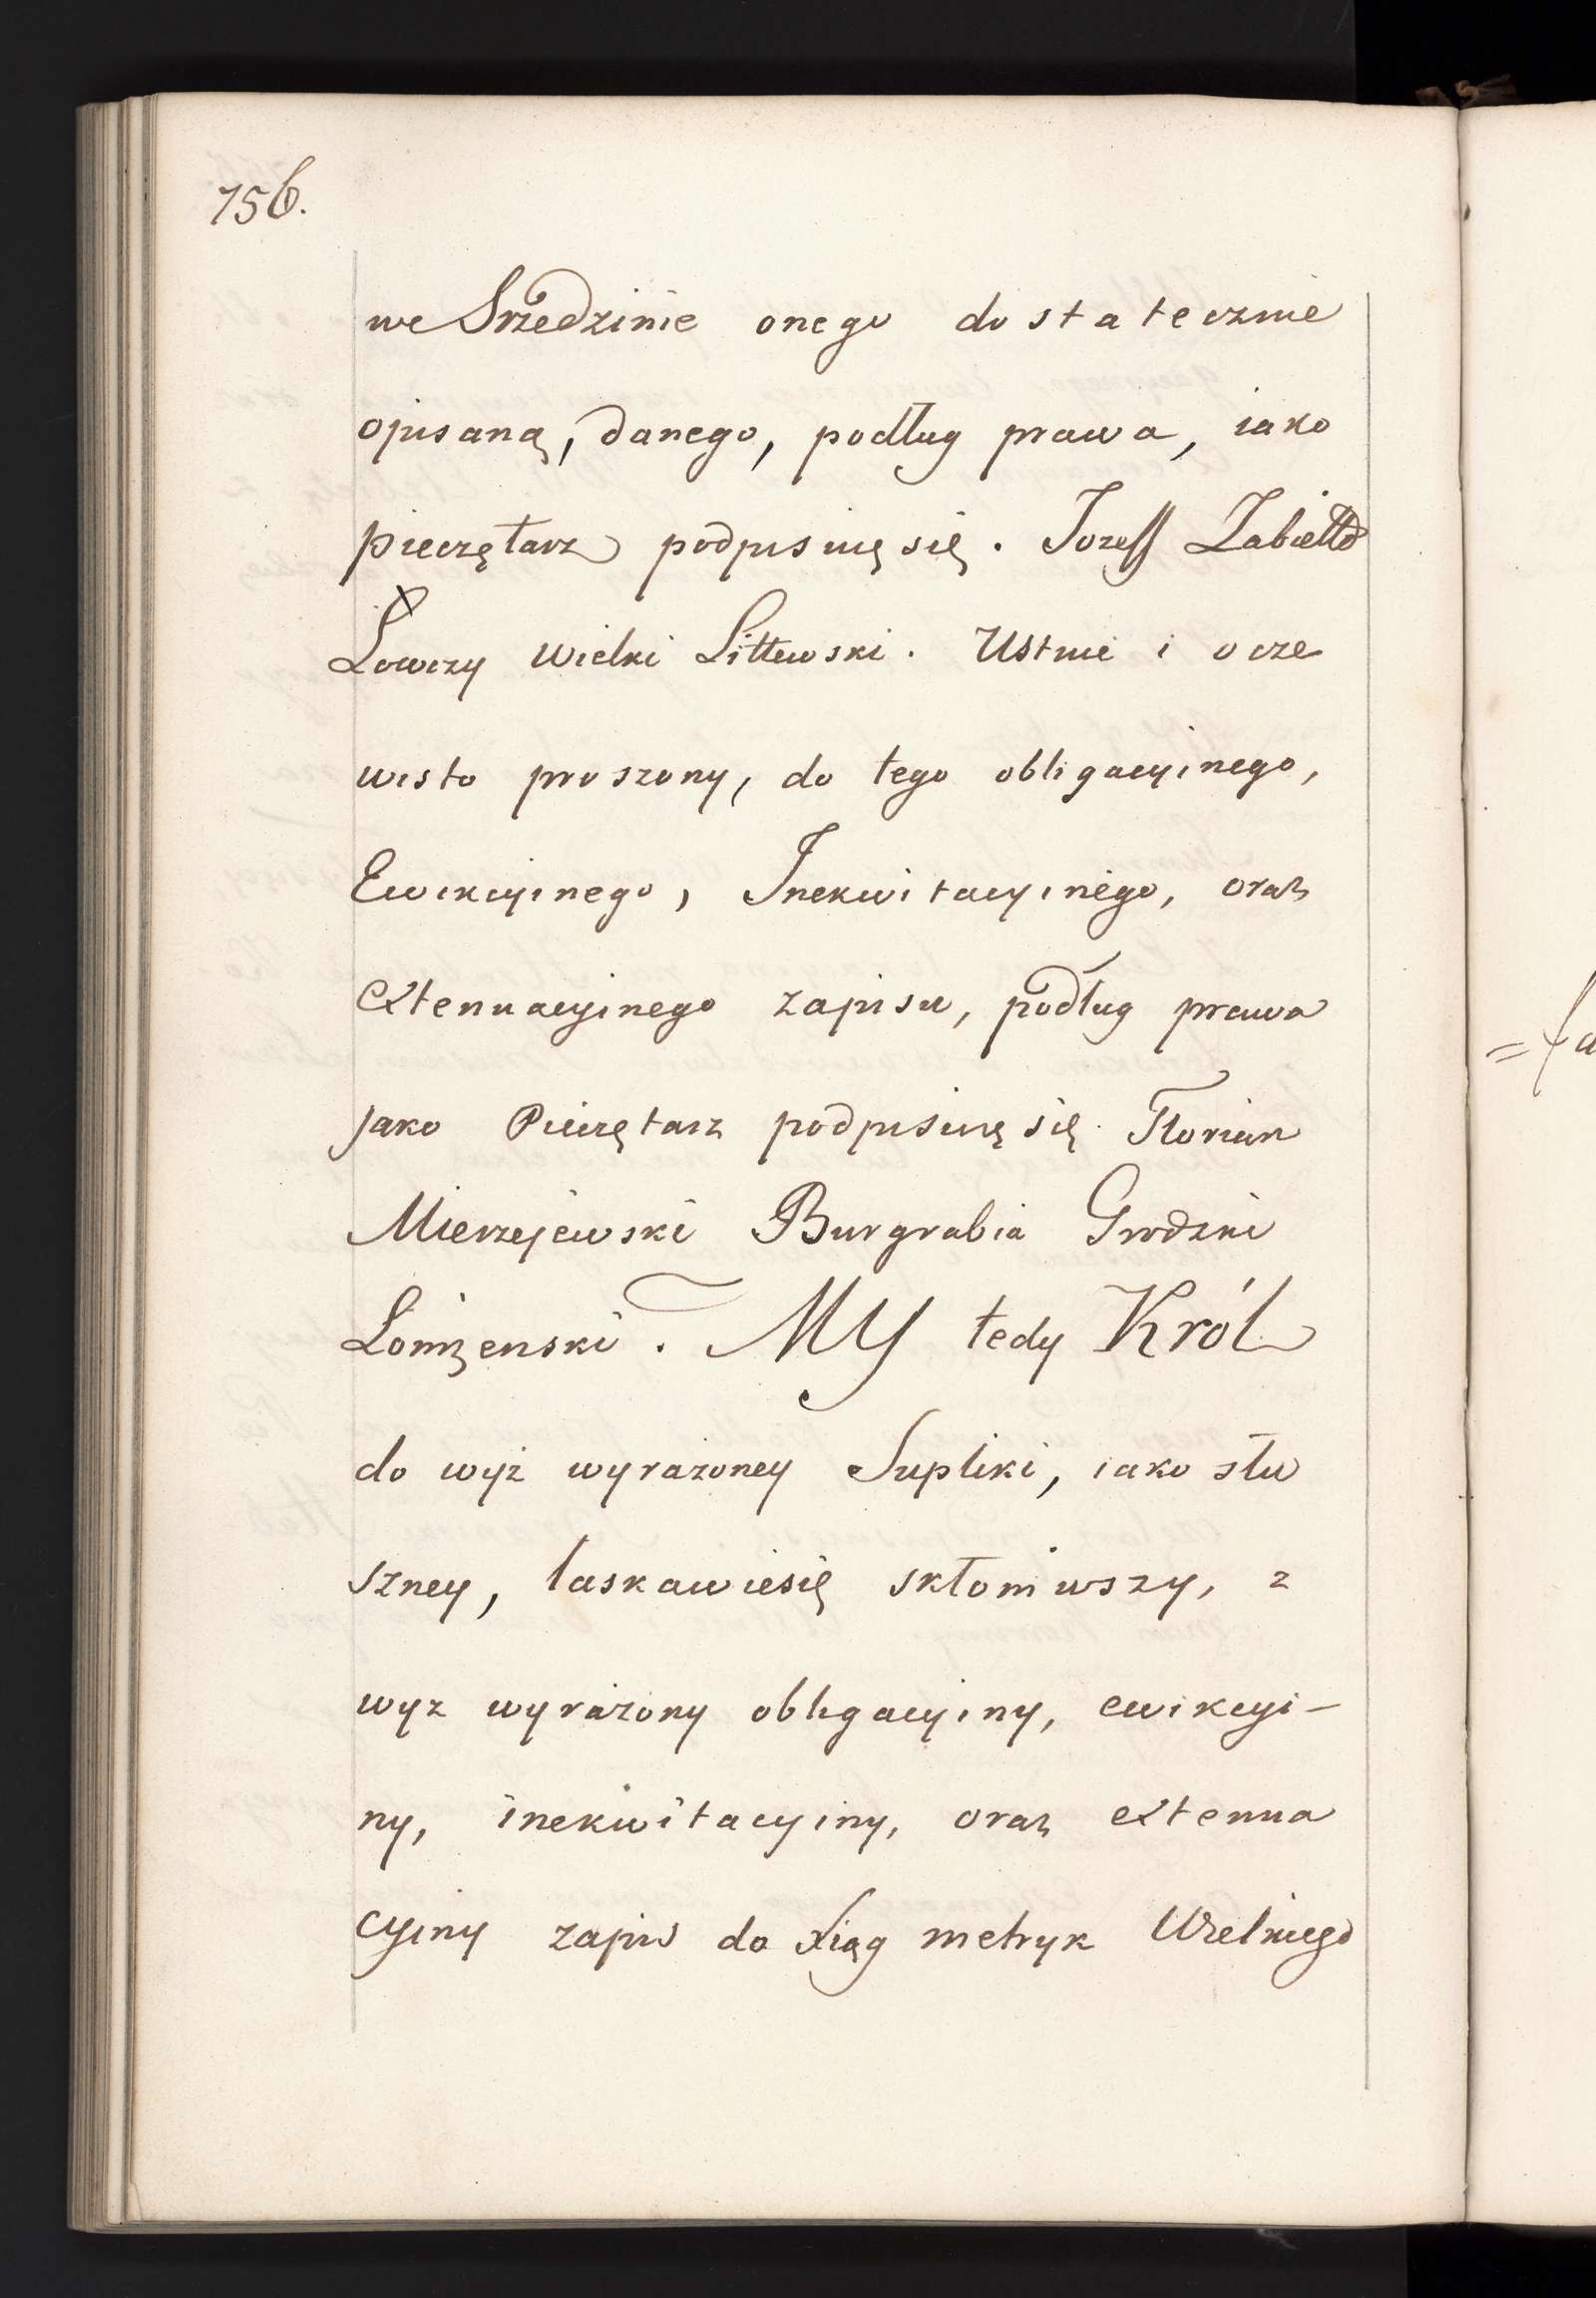 756.
we Srzedzinie onego dostatecznie
opisaną, danego, podług prawa, iako
pieczętarz podpisuię się. Jozeff Zabiełło
Łowczy Wielki Littewski. Ustnie i ocze
wisto proszony, do tego obligacyinego,
Ewikcyinego, Inekwitacyinego, oraz
extenuacyinego zapisu, podług prawa
jako Pieczętarz podpisuię się. Floryan
Mierzejewski Burgrabia Grodzki
Łomżenski. MY tedy Król
do wyż wyrażoney Supliki, iako słu
szney, łaskawiesię skłoniwszy, z
wyz wyrażony obligacyiny, ewikcyi-
ny, inekwitacyiny, oraz extenua
cyiny zapis do xiąg metryk Wielkiego